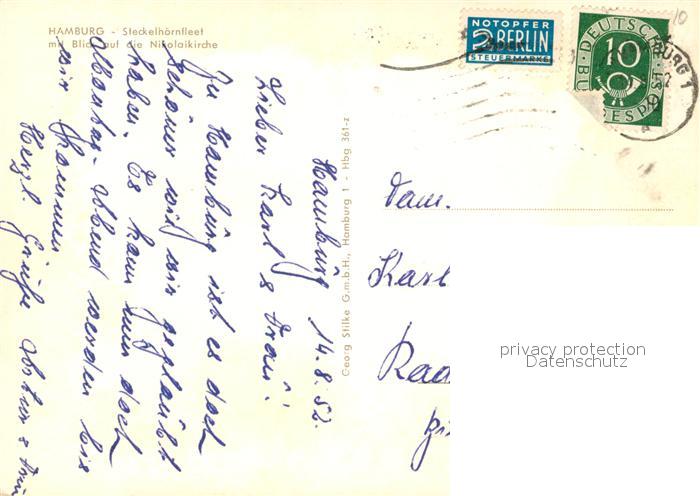 HAMBURG - Steckelhörnfleet
mit Blick auf die Nikolaikirche
NOTOPFER
2 BERLIN
STEUERMARKE
DEUTSCHE BUNDESPOST
10
10
Hamburg 14.8.52.
Lieber Karl & Frau!
In Hamburg ist es doch
schöner als wir geglaubt
haben. Es kann nun doch
Abend werden bis
wir kommen
Herzl. Grüße Artur & Frau
Georg Stilke G.m.b.H., Hamburg 1 - Hbg 361-z
Fam.
Karl
privacy protection
Datenschutz